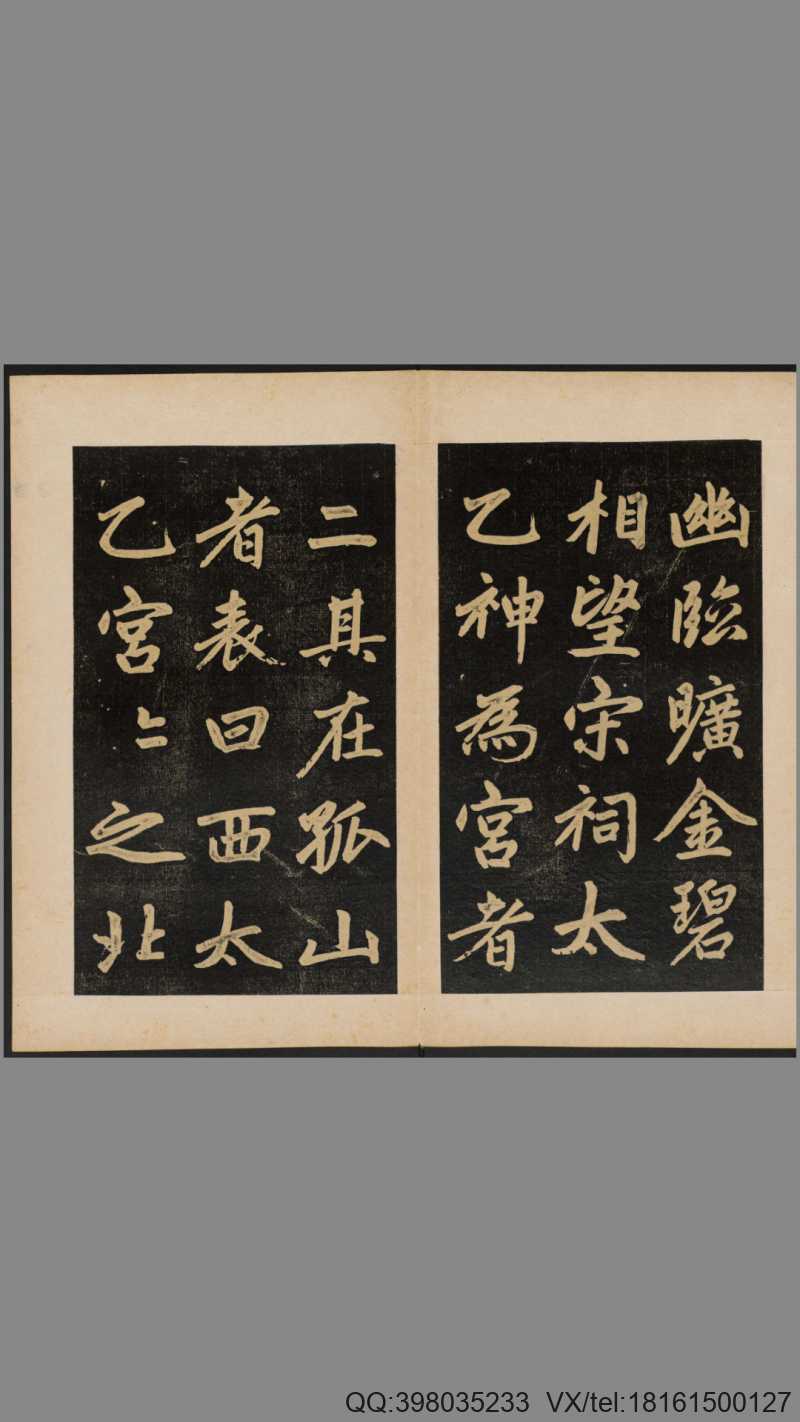 幽臨曠金碧
相望宋祠太
乙神為宮者
二其在孤山
者表曰西太
乙宮〻之北
QQ:398035233 VX/tel:18161500127